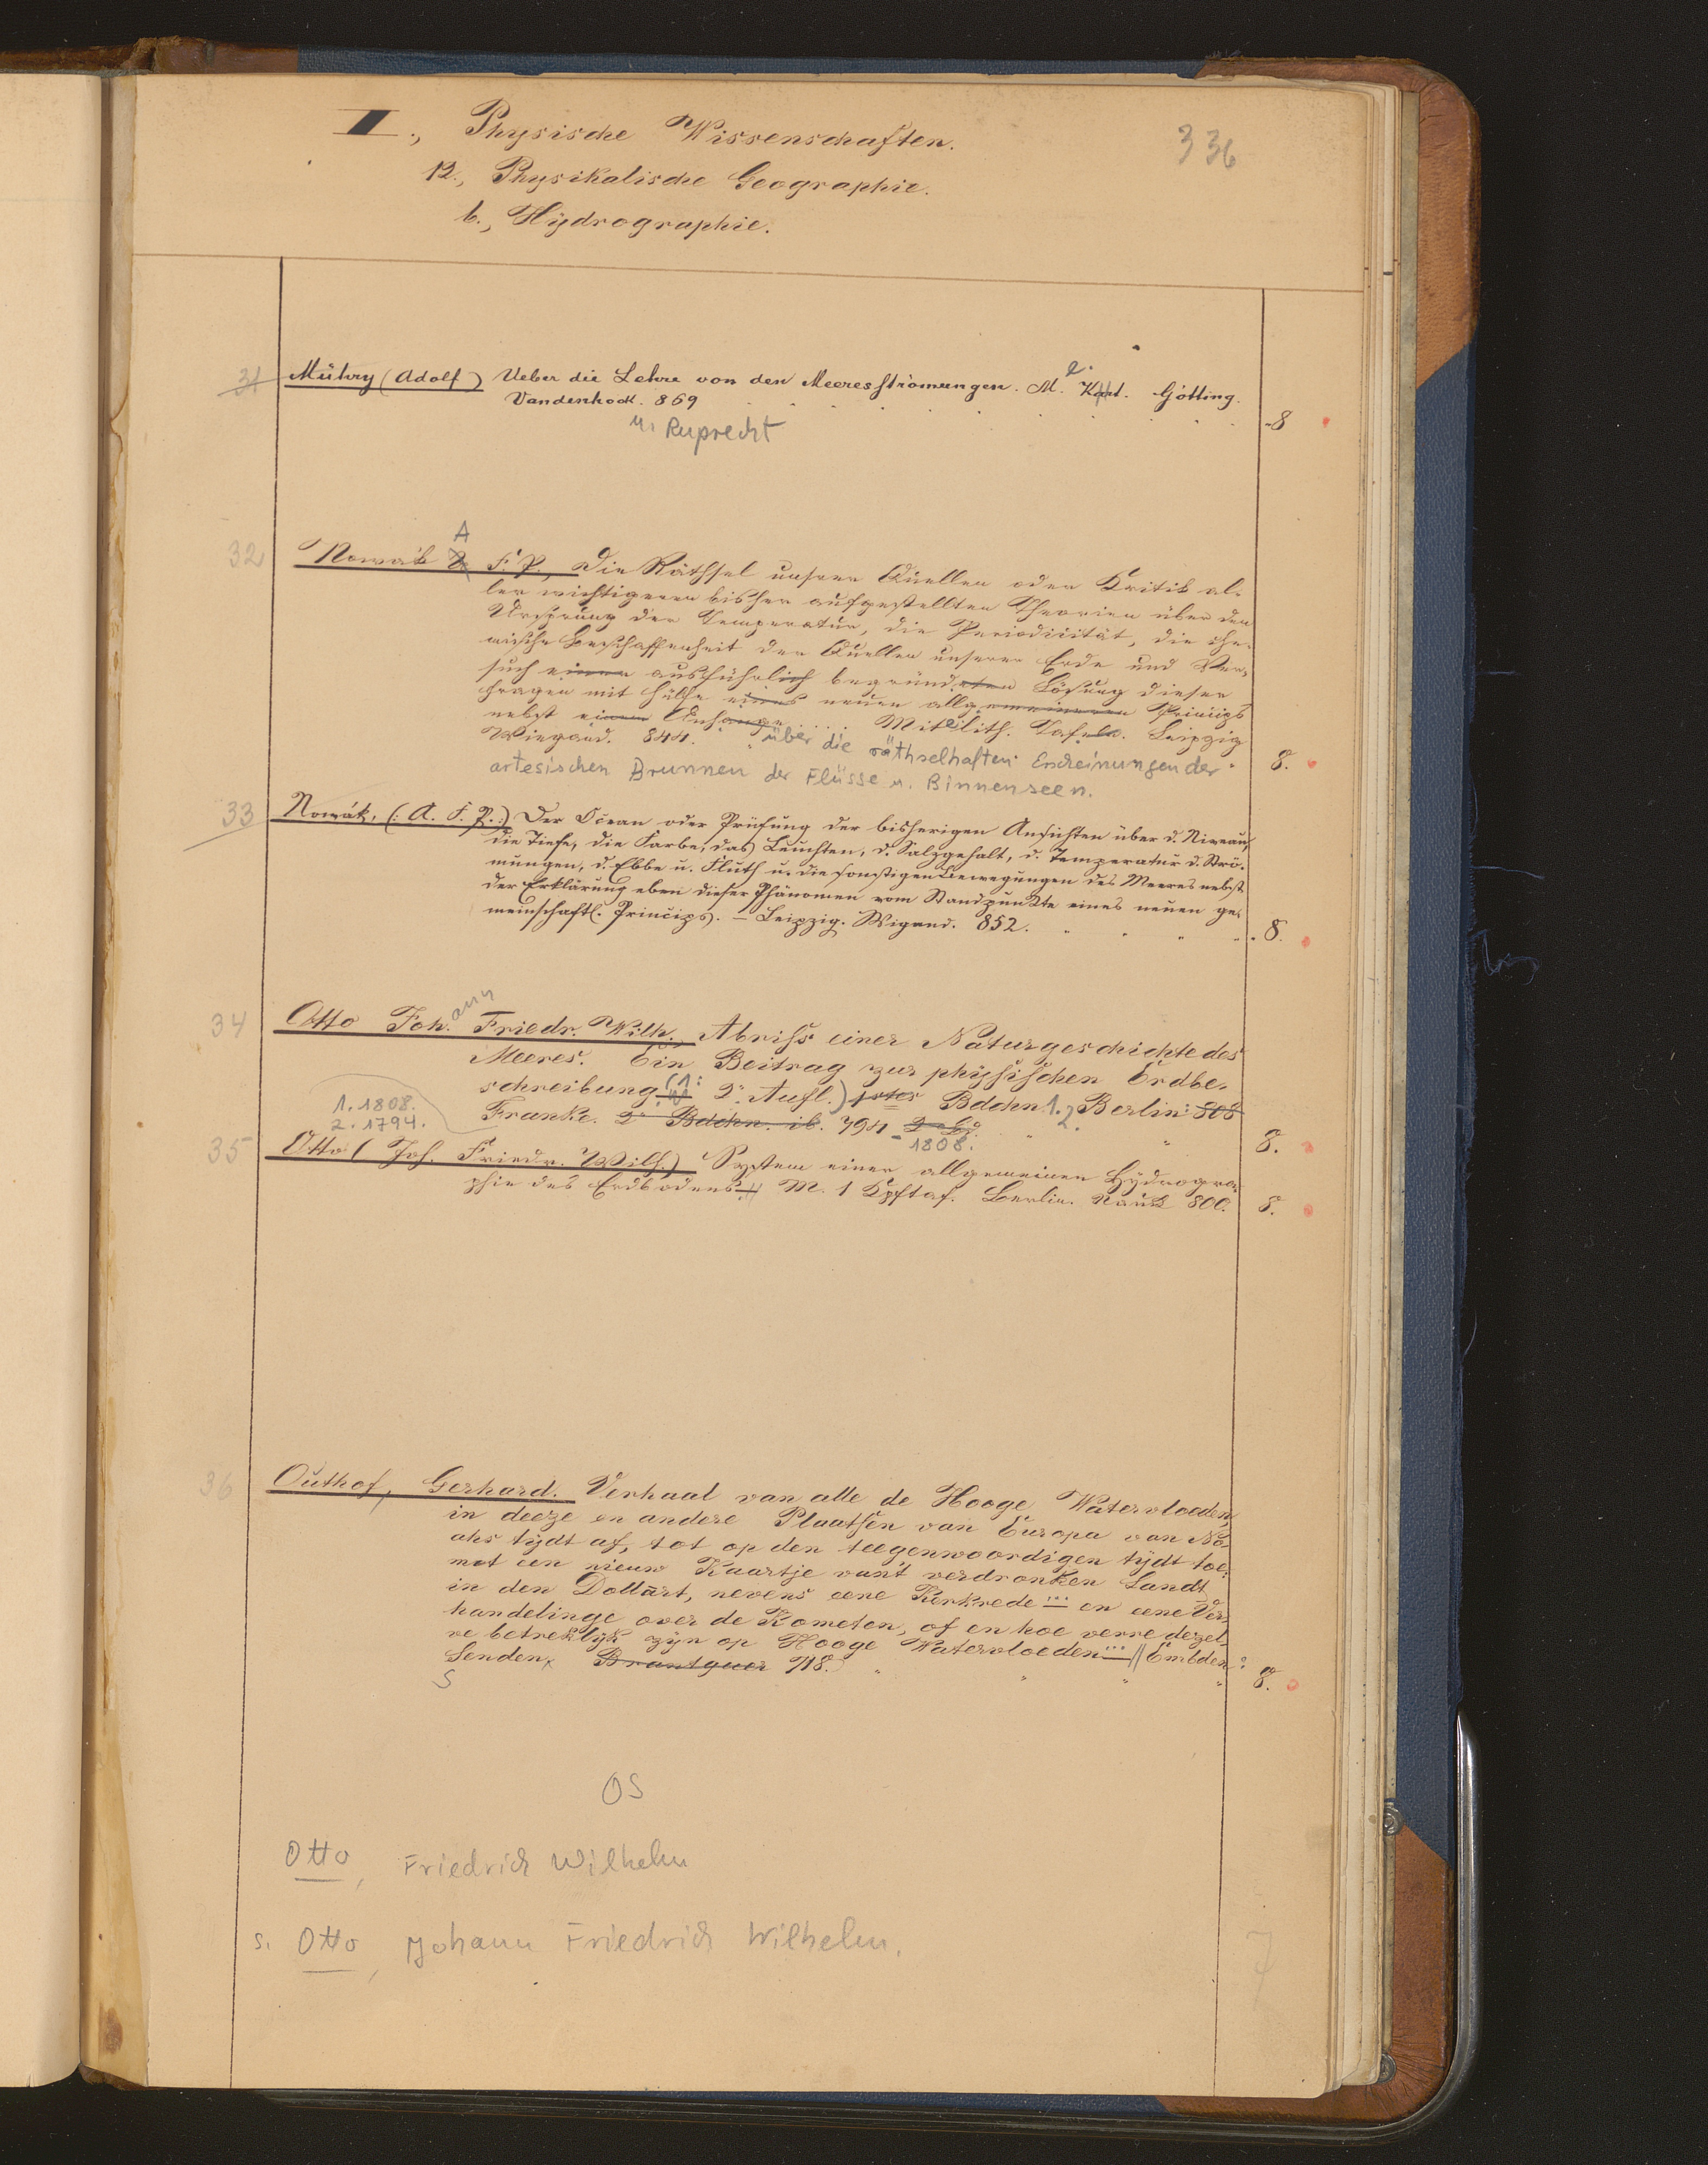 II., Physische Wissenschaften.
336
12., Physikalische Geographie.
b., Hydrographie.
31 Mühry (Adolf) Ueber die Lehre von den Meeresströmungen. M. Kart. Götting.
Vandenhock. 869 8
u. Ruprecht
A
32 Nowak F. P., Die Räthsel unserer Quellen oder Kritik al-
ler wichtigeren bisher aufgestellten Theorien über den
Ursprung der Temperatur, die Periodicität, die che-
mische Beschaffenheit der Quellen unserer Erde und Ver-
such einer ausführlich begründeten Lösung dieser
Fragen mit Hülfe eines neuen allgemeineren Princips
nebst einem Anhange .... Mit lith. Tafeln. Leipzig
Wiegand. 844. über die räthselhaften Erscheinungen der 8.
artesischen Brunnen der Flüsse u. Binnenseen.
33 Nowák, (: A. F. P. :) Der Ocean oder Prüfung der bisherigen Ansichten über d. Niveau,
die Tiefe, die Farbe, das Leuchten, d. Salzgehalt, d. Temperatur d. Strö-
mungen, d. Ebbe u. Fluth u. die sonstigen Bewegungen des Meeres nebst
der Erklärung eben dieser Phänomen vom Standpunkte eines neuen ge-
meinschaftl. Princips. – Leipzig. Wigand. 852. 8.
34 Otto Joh.ann Friedr. Wilh. Abriss einer Naturgeschichte des
Meeres. Ein Beitrag zur physischen Erdbe-
schreibung (1: 2. Aufl.) 1stes Bdchn 1. 2. Berlin: 808
1. 1808. Franke. 2s Bdchn. ib. 794 - 1808. 8.
2. 1794.
35 Otto (Joh. Friedr. Wilh.) System einer allgemeinen Hydrogra-
phie des Erdbodens. M. 1 Kpftaf. Berlin. Nauk 800. 8.
36 Outhof, Gerhard. Verhaal van alle de Hooge Watervloeden,
in deeze en andere Plaatsen van Europa van No-
ahs tydt af, tot op den teegenwoordigen tydt toe.
met een nieuw Kaartje vant verdronken Landt
in den Dollart, nevens eene Kerkrede ... en eene Ver-
handelinge over de Kometen, of en hoe verre dezel-
ve betreklyk zyn op Hooge Watervloeden ... // Embden:
Senden. Brantguer 718. 8.
S
OS
Otto, Friedrich Wilhelm
s. Otto, Johann Friedrich Wilhelm.
7